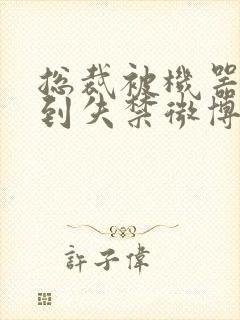 总裁被機器
到失禁微博
許子偉